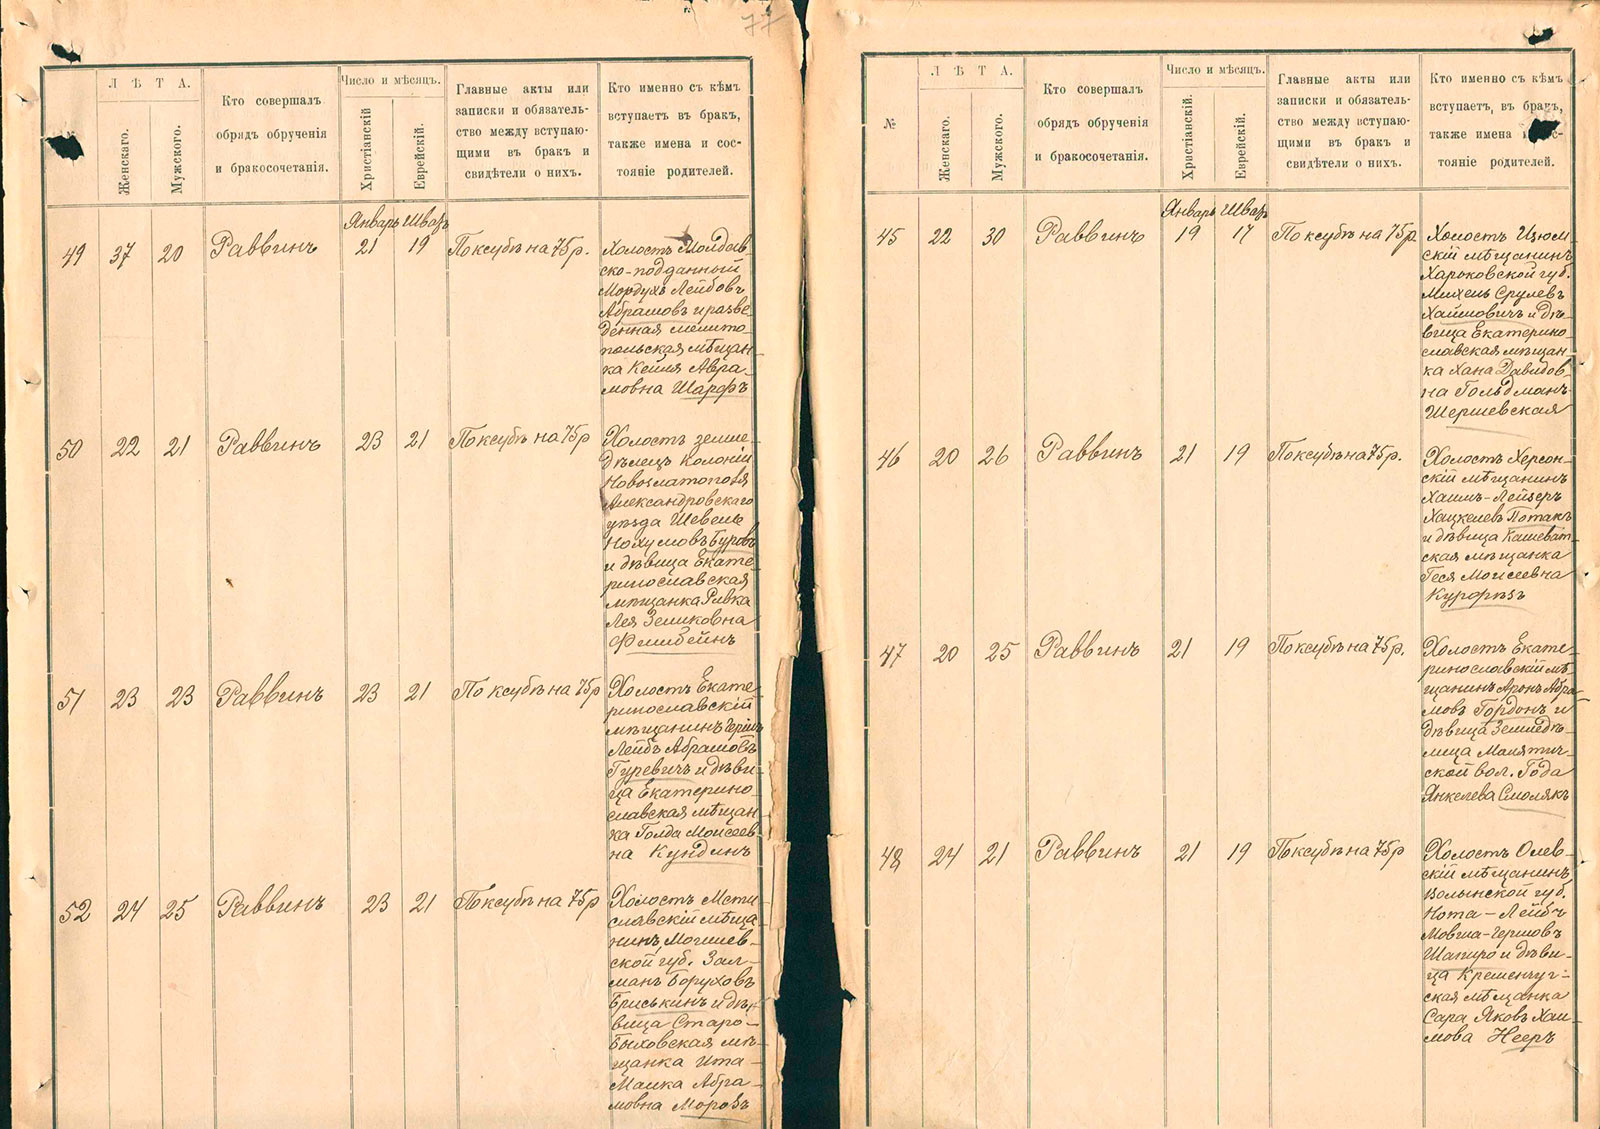 77
Л Ѣ Т А.
Женскаго.
Мужского.
Кто совершалъ
обрядъ обрученія
и бракосочетанія.
Число и мѣсяцъ.
Христіанскій
Еврейскій.
Главные акты или
записки и обязатель-
ство между вступаю-
щими въ бракъ и
свидѣтели о нихъ.
Кто именно съ кѣмъ
вступаетъ въ бракъ,
также имена и сос-
тояніе родителей.
Январь Шватъ
49 37 20 Раввинъ 21 19 По ксубѣ на 75 р.
Холостъ Молдав-
ско-подданный
Мордухъ Лейбовъ
Абрамовъ и разве-
денная мелито-
польская мѣщан-
ка Кейля Авра-
мовна Шарфъ
50 22 21 Раввинъ 23 21 По ксубѣ на 75 р
Холостъ земле-
дѣлецъ колоніи
Новозлатополя
Александровскаго
уѣзда Шевель
Нохумовъ Буровъ
и дѣвица Екате-
ринославская
мѣщанка Ривка
Лея Зеликовна
51 23 23 Раввинъ 23 21 По ксубѣ на 75 р
Холостъ Екате-
ринославскій
мѣщанинъ Гершъ
Лейбъ Абрамовъ
Гуревичъ и дѣви-
ца Екатерино-
славская мѣщан-
ка Голда Моисеев-
на Кундинъ
52 24 25 Раввинъ 23 21 По ксубѣ на 75 р
Холостъ Мсти-
славскій мѣща-
нинъ Могилев-
ской губ. Зал-
манъ Боруховъ
Бриськинъ и дѣ-
вица Старо-
Быховская мѣ-
щанка Ита-
Малка Абра-
мовна Морозъ
№
Л Ѣ Т А.
Женскаго.
Мужского.
Кто совершалъ
обрядъ обрученія
и бракосочетанія.
Число и мѣсяцъ.
Христіанскій.
Еврейскій.
Главные акты или
записки и обязатель-
ство между вступаю-
щими въ бракъ и
свидѣтели о нихъ.
Кто именно съ кѣмъ
вступаетъ, въ бракъ,
также имена и сос-
тояніе родителей.
Январь Шватъ
45 22 30 Раввинъ 19 17 По ксубѣ на 75 р
Холостъ Изюм-
скій мѣщанинъ
Харьковской губ.
Михель Срулевъ
Хаймовичъ и дѣ-
вица Екатерино-
славская мѣщан-
ка Хана Давидов-
на Гольдманъ-
Шершевская
46 20 26 Раввинъ 21 19 По ксубѣ на 75 р.
Холостъ Херсон-
скій мѣщанинъ
Хаимъ-Лейзеръ
Хацкелевъ Потакъ
и дѣвица Кашеват-
ская мѣщанка
Геся Моисеевна
47 20 25 Раввинъ 21 19 По ксубѣ на 75 р.
Холостъ Екате-
ринославскій мѣ-
щанинъ Аронъ Абра-
мовъ Гордонъ и
дѣвица Земледѣ-
лица
ской вол. Года
Янкелева Смолякъ
48 24 21 Раввинъ 21 19 По ксубѣ на 75 р
Холостъ Олев-
скій мѣщанинъ
Волынской губ.
Нота-Лейбъ
Мовша-Гершовъ
Шапиро и дѣви-
ца Кременчуг-
ская мѣщанка
Сара Яковъ Хаи-
мова Нееръ